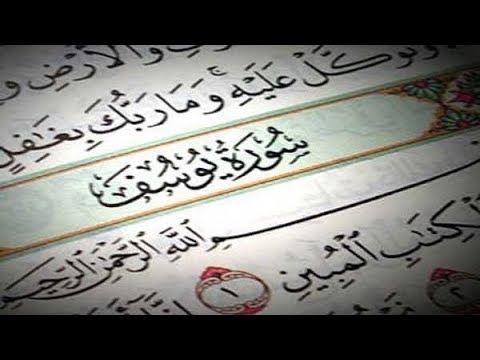 وَٱلْأَرْضِ
وَتَوَكَّلْ عَلَيْهِ ۚ وَمَا رَبُّكَ بِغَٰفِلٍ
سُورَةُ يُوسُفَ
ٱللَّهِ ٱلرَّحْمَٰنِ ٱلرَّحِيمِ
ٱلْكِتَٰبِ ٱلْمُبِينِ ١ إِنَّآ
٢